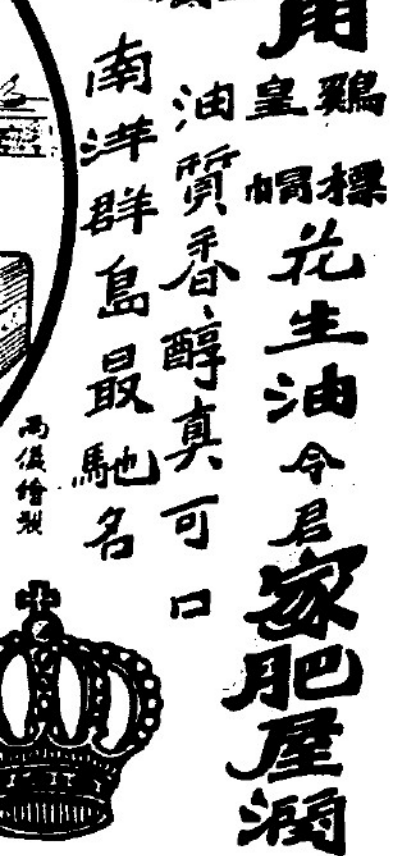 用鷄標皇帽花生油令君家肥屋潤
油質香醇真可口
南洋群島最馳名
兩儀繪製